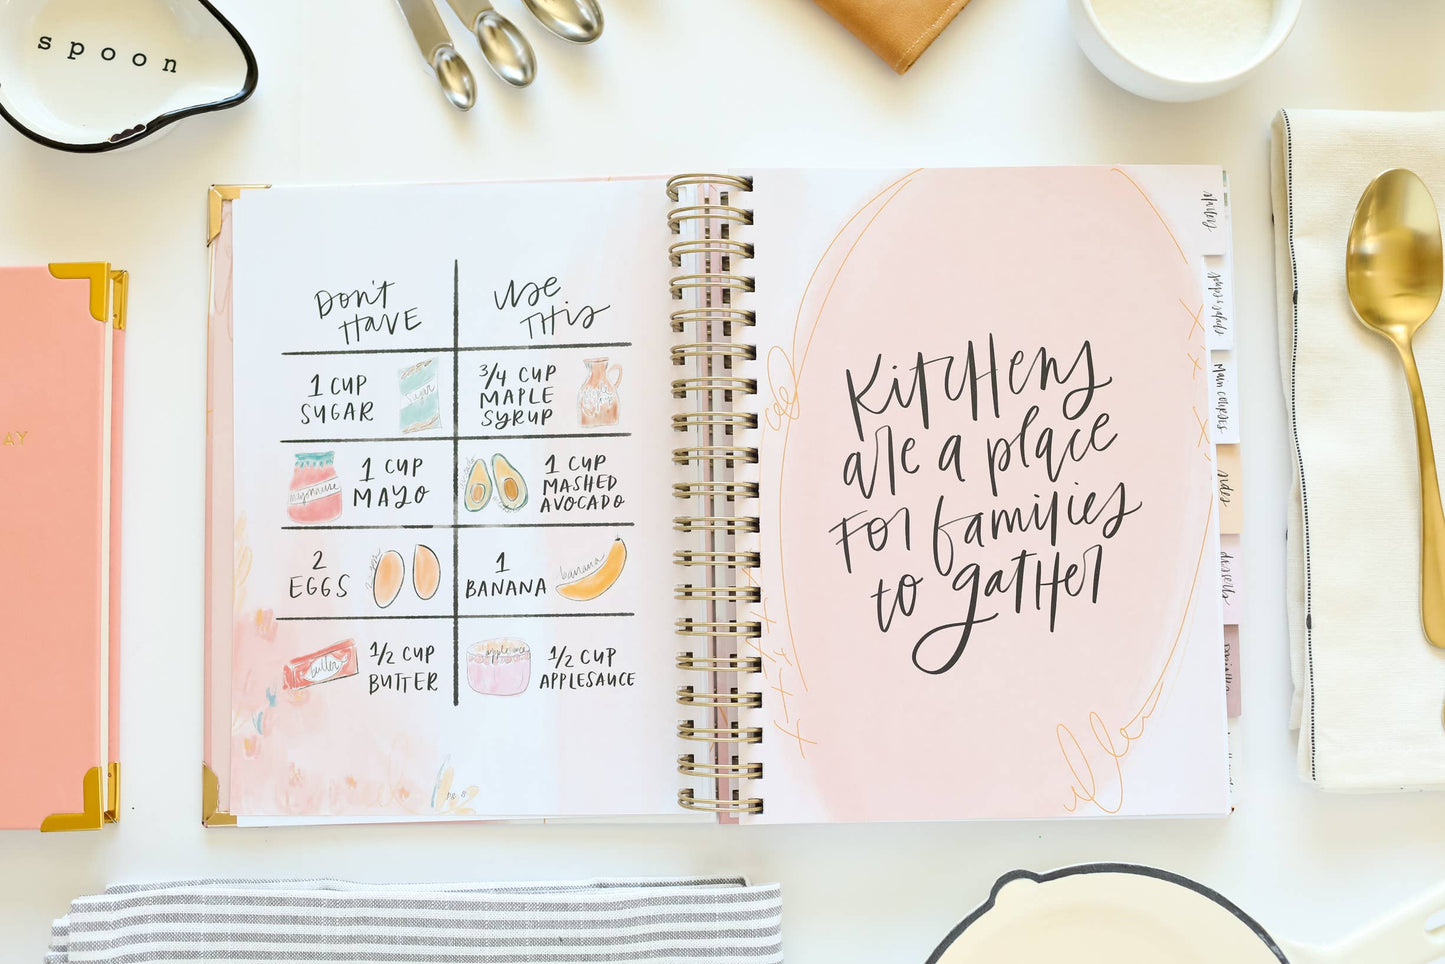 spoon
AY
Don't
Have
Use
This
1 CUP
SUGAR
Sugar
3/4 CUP
MAPLE
SYRUP
mayonnaise
1 CUP
MAYO
1 CUP
MASHED
AVOCADO
2
EGGS
1
BANANA
banana
butter
1/2 CUP
BUTTER
applesauce
1/2 CUP
APPLESAUCE
PG. 8
Kitchens
are a place
for families
to gather
main courses
sides
desserts
drinks